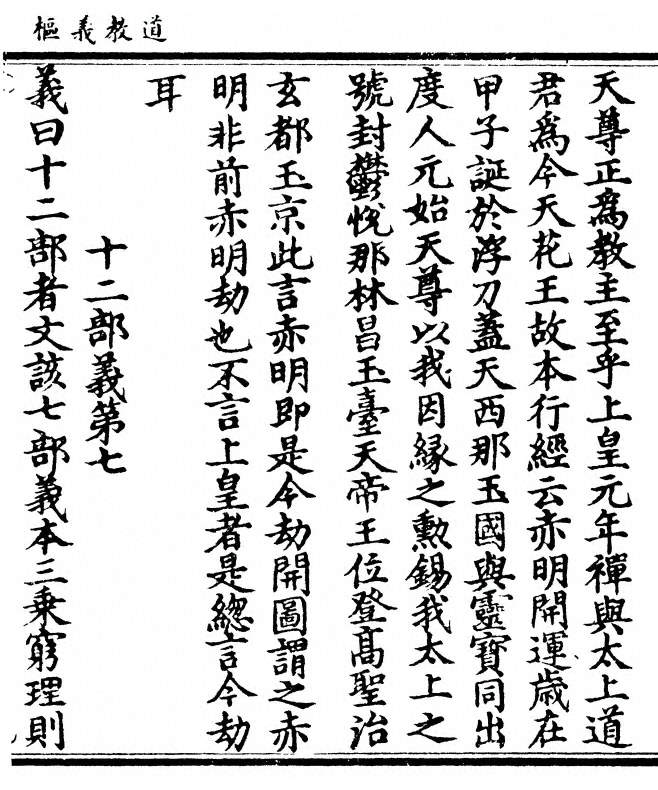 道教義樞
天尊正爲教主至乎上皇元年禪與太上道
君爲今天花王故本行經云赤明開運歲在
甲子誕於浮刀蓋天西那玉國與靈寶同出
度人元始天尊以我因緣之勳錫我太上之
號封鬱悅那林昌玉臺天帝王位登高聖治
玄都玉京此言赤明即是今劫開圖謂之赤
明非前赤明劫也不言上皇者是總言今劫
耳
十二部義第七
義曰十二部者文該七部義本三乗窮理則